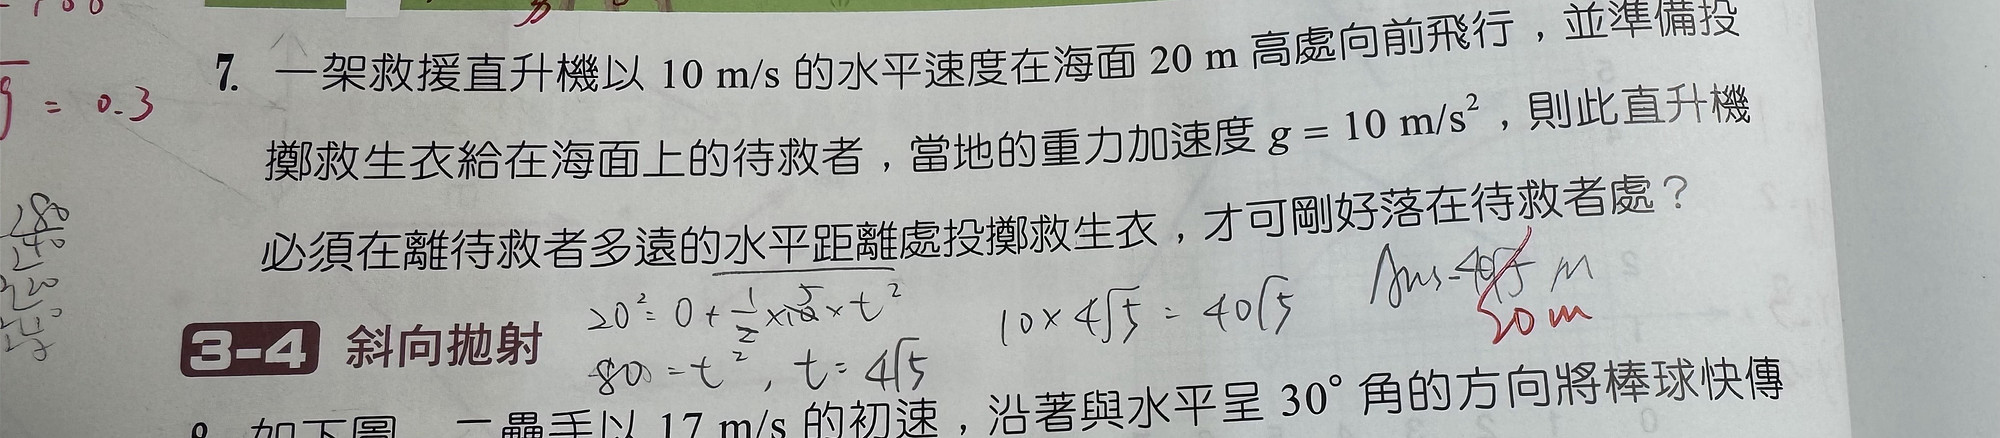 = 0.3
7. 一架救援直升機以 10 m/s 的水平速度在海面 20 m 高處向前飛行，並準備投
擲救生衣給在海面上的待救者，當地的重力加速度 g = 10 m/s²，則此直升機
必須在離待救者多遠的水平距離處投擲救生衣，才可剛好落在待救者處？
Ans = 40√5 m
20 m
20² = 0 + 1/2 × 10 5 × t²
10 × 4√5 = 40√5
80 = t², t = 4√5
3-4 斜向拋射
8. 如下圖，二壘手以 17 m/s 的初速，沿著與水平呈 30° 角的方向將棒球快傳